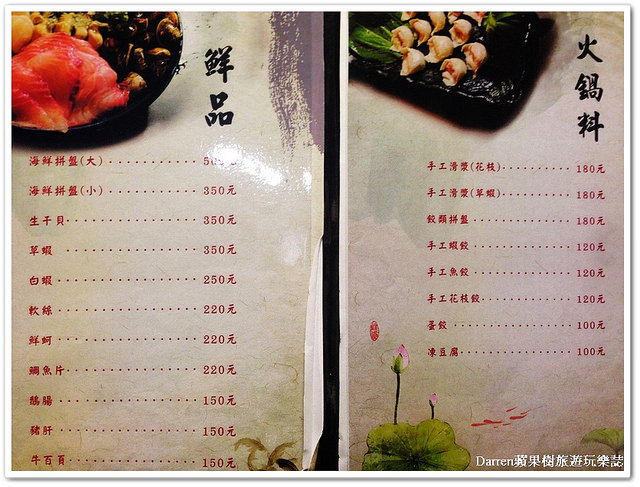 鮮品
海鮮拼盤(大)
海鮮拼盤(小) 350元
生干貝 350元
草蝦 350元
白蝦 250元
軟絲 220元
鮮蚵 220元
鯛魚片 220元
鵝腸 150元
豬肝 150元
牛百頁 150元
火鍋料
手工滑漿(花枝) 180元
手工滑漿(草蝦) 180元
餃類拼盤 180元
手工蝦餃 120元
手工魚餃 120元
手工花枝餃 120元
蛋餃 100元
凍豆腐 100元
Darren蘋果樹旅遊玩樂誌